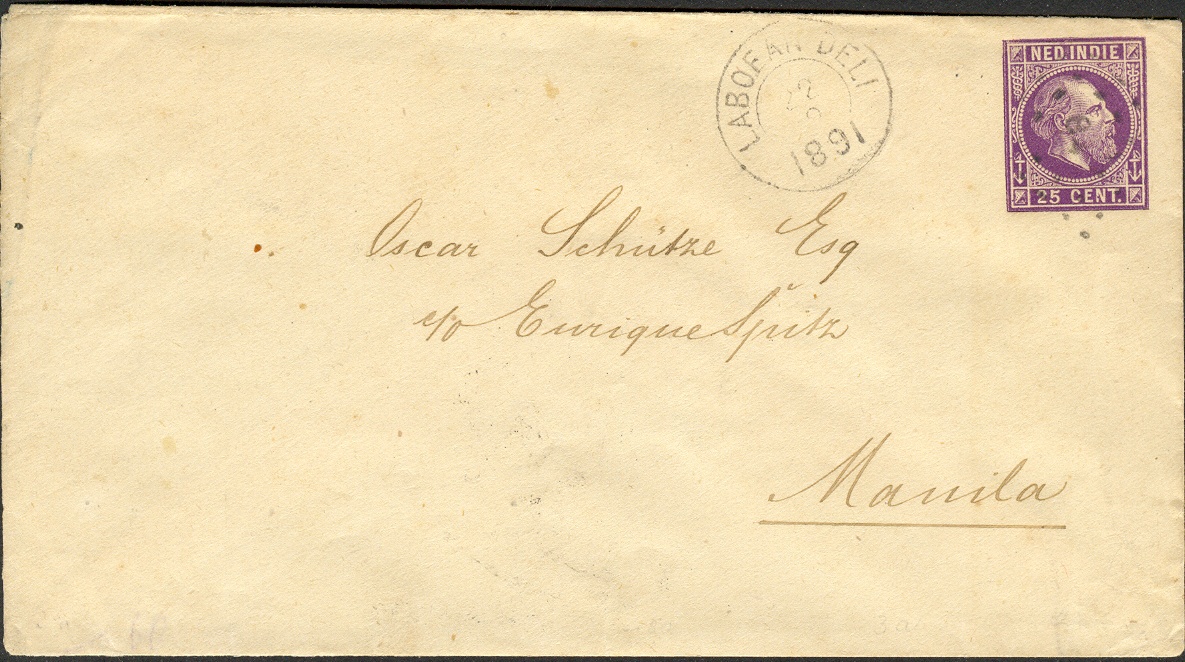 LABOEAN DELI
1891
NED. INDIE
25 CENT.
Oscar Schütze Esq
c/o Enrique Spitz
Manila